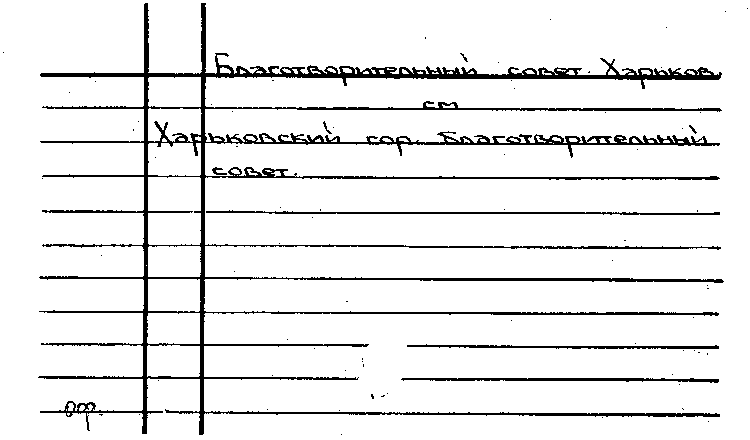 Благотворительный совет. Харьков.
см
Харьковский гор. благотворительный
совет.